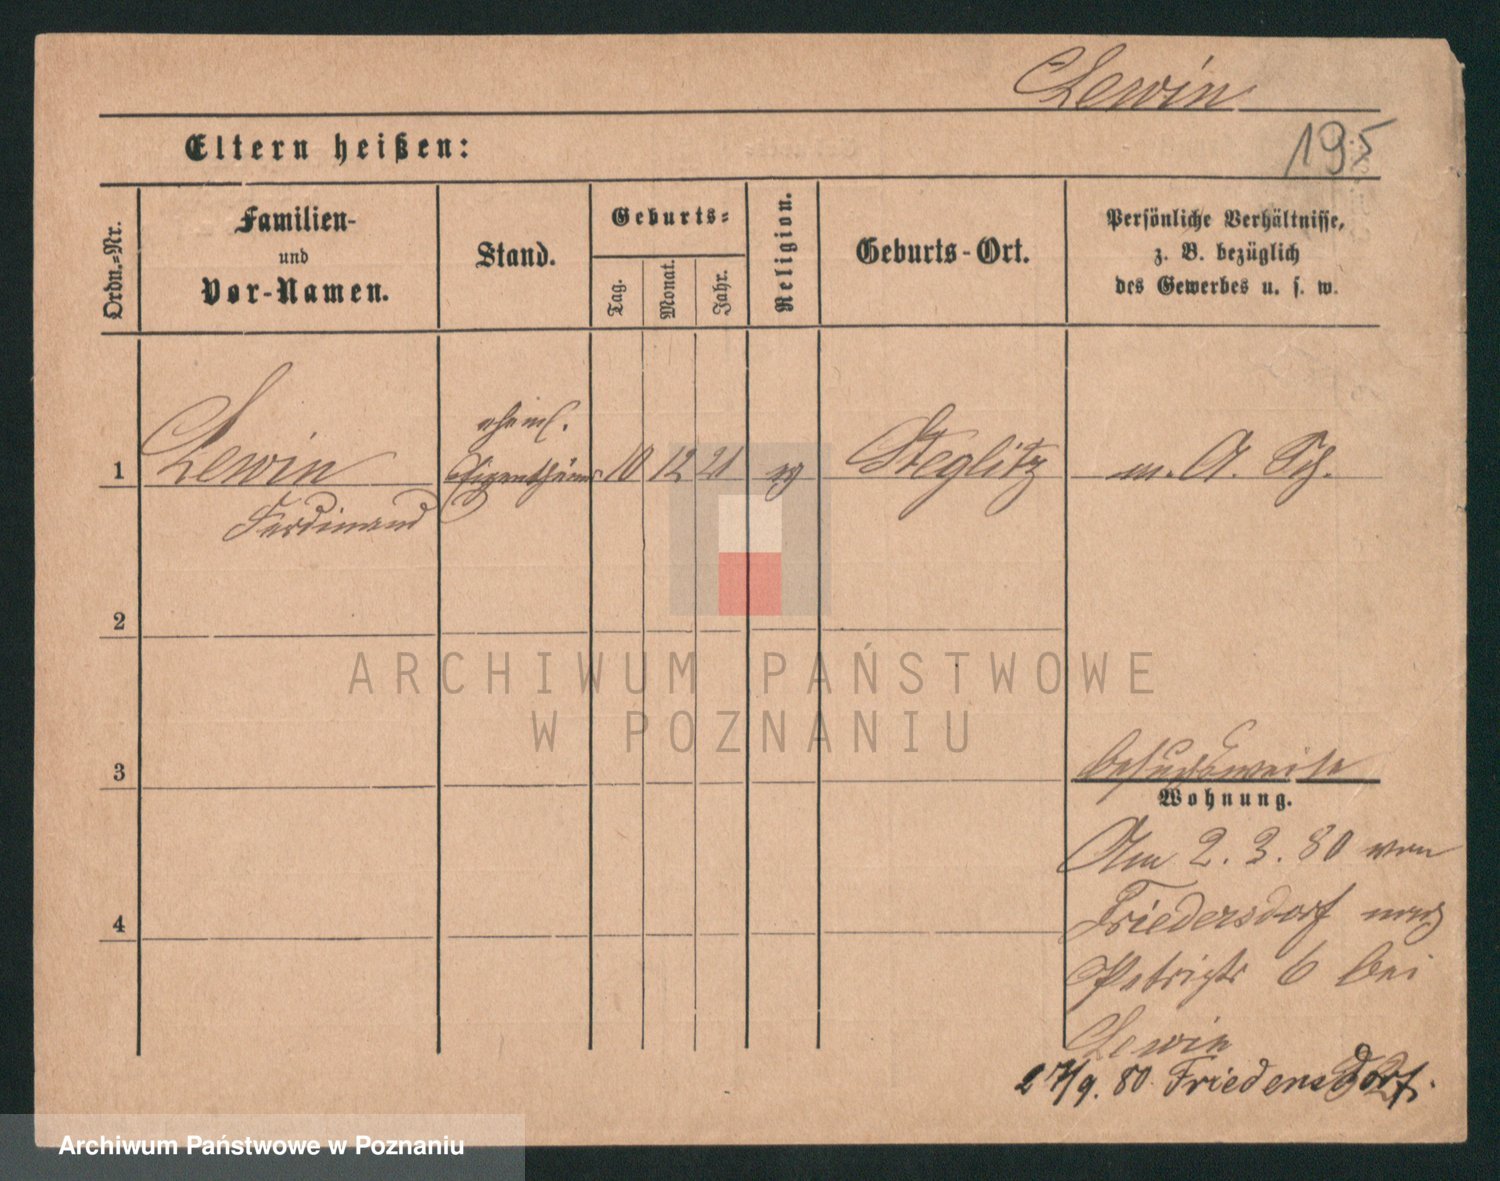 Lewin
195
Eltern heißen:
Ordn.-Nr.
Familien-
und
Vor-Namen.
Stand.
Geburts-
Tag.
Monat.
Jahr.
Religion.
Geburts-Ort.
Persönliche Verhältnisse,
z. B. bezüglich
des Gewerbes u. s. w.
1
Lewin
Ferdinand
ehem.
Eigenthümer
10
12
21
Steglitz
m. A. Sch.
2
ARCHIWUM PAŃSTWOWE
W POZNANIU
3
besuchsweise
Wohnung.
Am 2. 3. 80 von
Friedersdorf nach
4
6 bei
Lewin
27/9. 80. Friedensdorf.
Archiwum Państwowe w Poznaniu